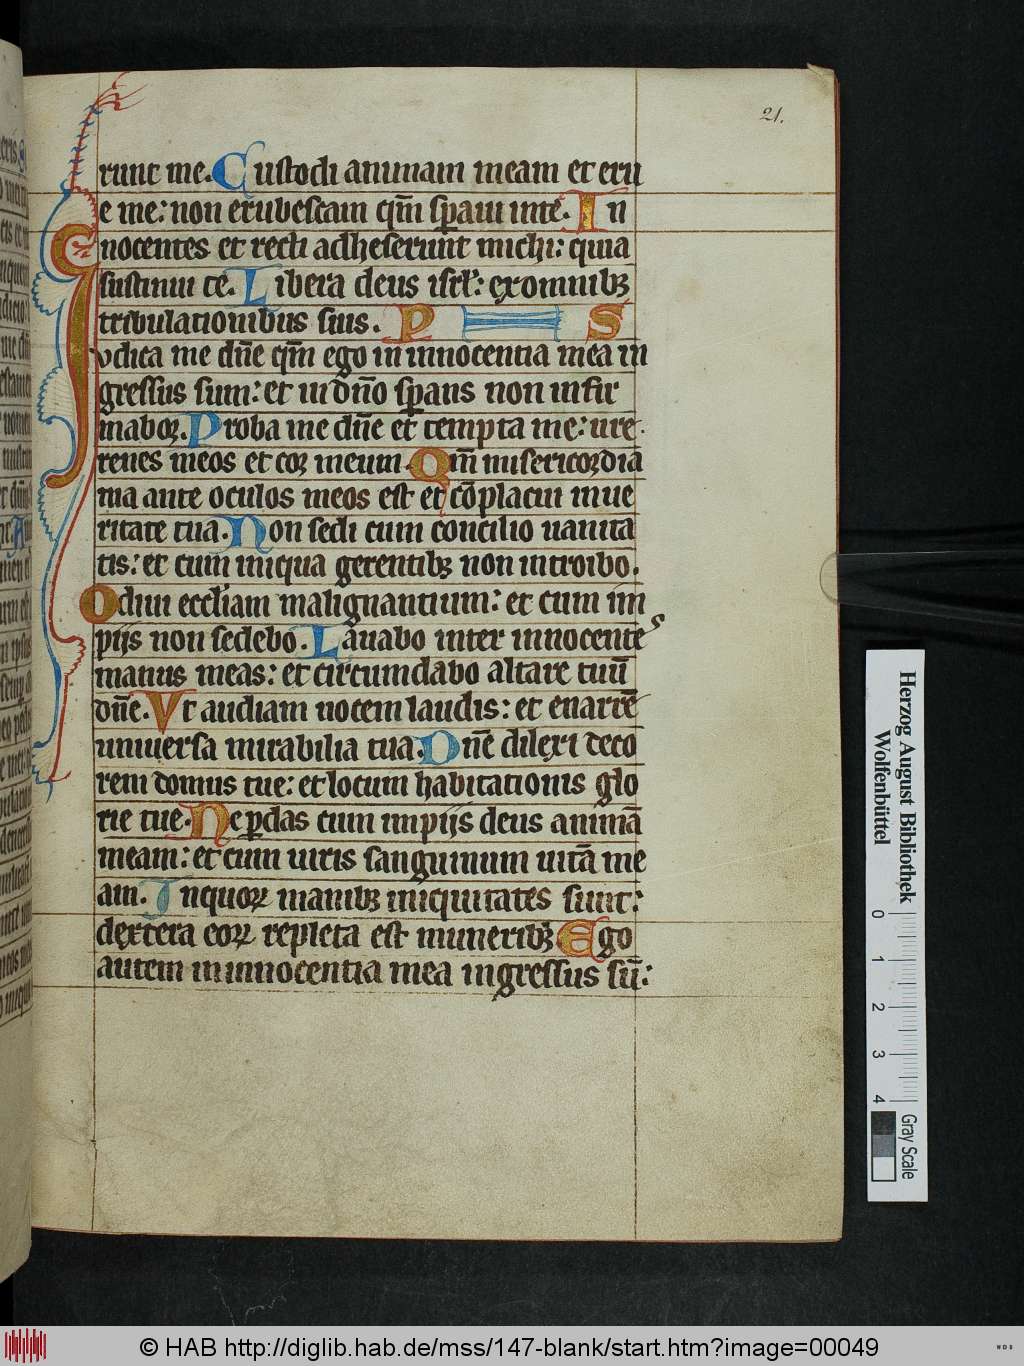 21.
runt me. Custodi animam meam et eru
e me: non erubescam qm̄ sp̄aui inte. In
nocentes et recti adheserunt michi: quia
sustinui te. Libera deus isrl̄: exomnibꝫ
tribulationibus suis. PS
Iudica me dn̄e qm̄ ego in innocentia mea in
gressus sum: et in dn̄o sp̄ans non infir
maboꝛ. Proba me dn̄e et tempta me: ure
renes meos et coꝛ meum. Qm̄ misericoꝛdia
tua ante oculos meos est et cōplacui inue
ritate tua. Non sedi cum concilio uanita
tis: et cum iniqua gerentibꝫ non introibo.
Odiui eccl̄iam malignantium: et cum im
pijs non sedebo. Lauabo inter innocentes
manus meas: et circumdabo altare tuū
dn̄e. Vt audiam uocem laudis: et enarrē
uniuersa mirabilia tua. Dn̄e dilexi deco
rem domus tue: et locum habitationis glo
rie tue. Ne ꝑdas cum impijs deus animā
meam: et cum uiris sanguinum uitā me
am. Inquoꝝ manibꝫ iniquitates sunt:
dextera eoꝝ repleta est muneribꝫ. Ego
autem in innocentia mea ingressus sū:
Herzog August Bibliothek
Wolfenbüttel
0 1 2 3 4
Gray Scale
© HAB http://diglib.hab.de/mss/147-blank/start.htm?image=00049